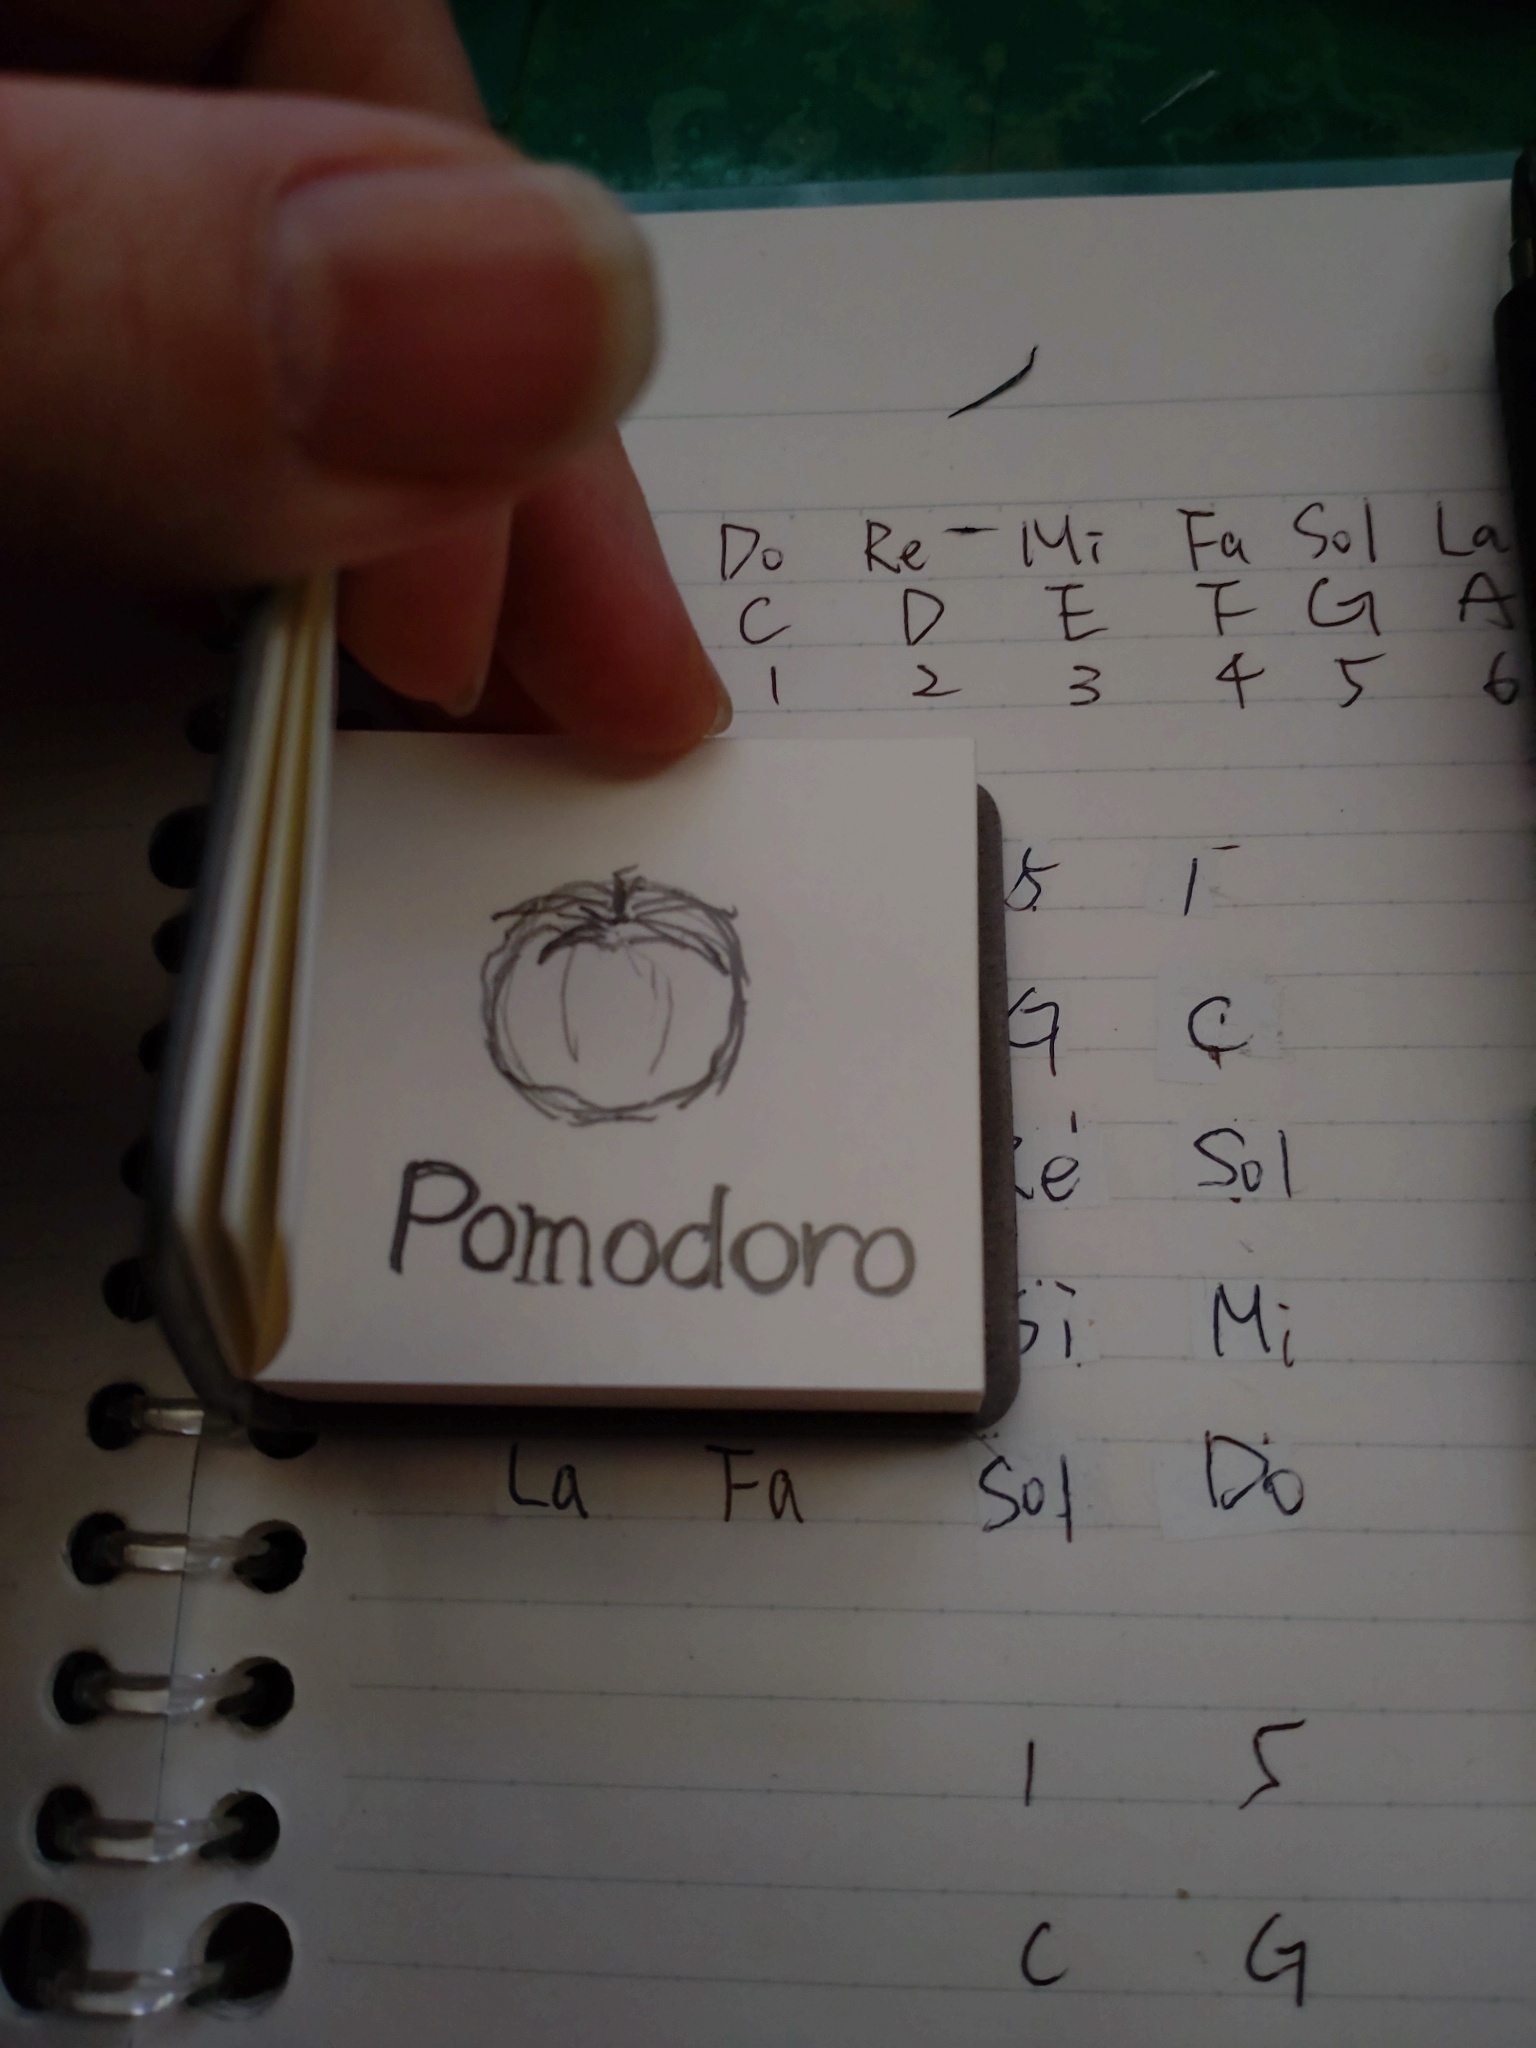 Do Re - Mi Fa Sol La
C D E F G A
1 2 3 4 5 6
5 1
G C
Sol
Pomodoro
Mi
La Fa Sol Do
1 5
C G